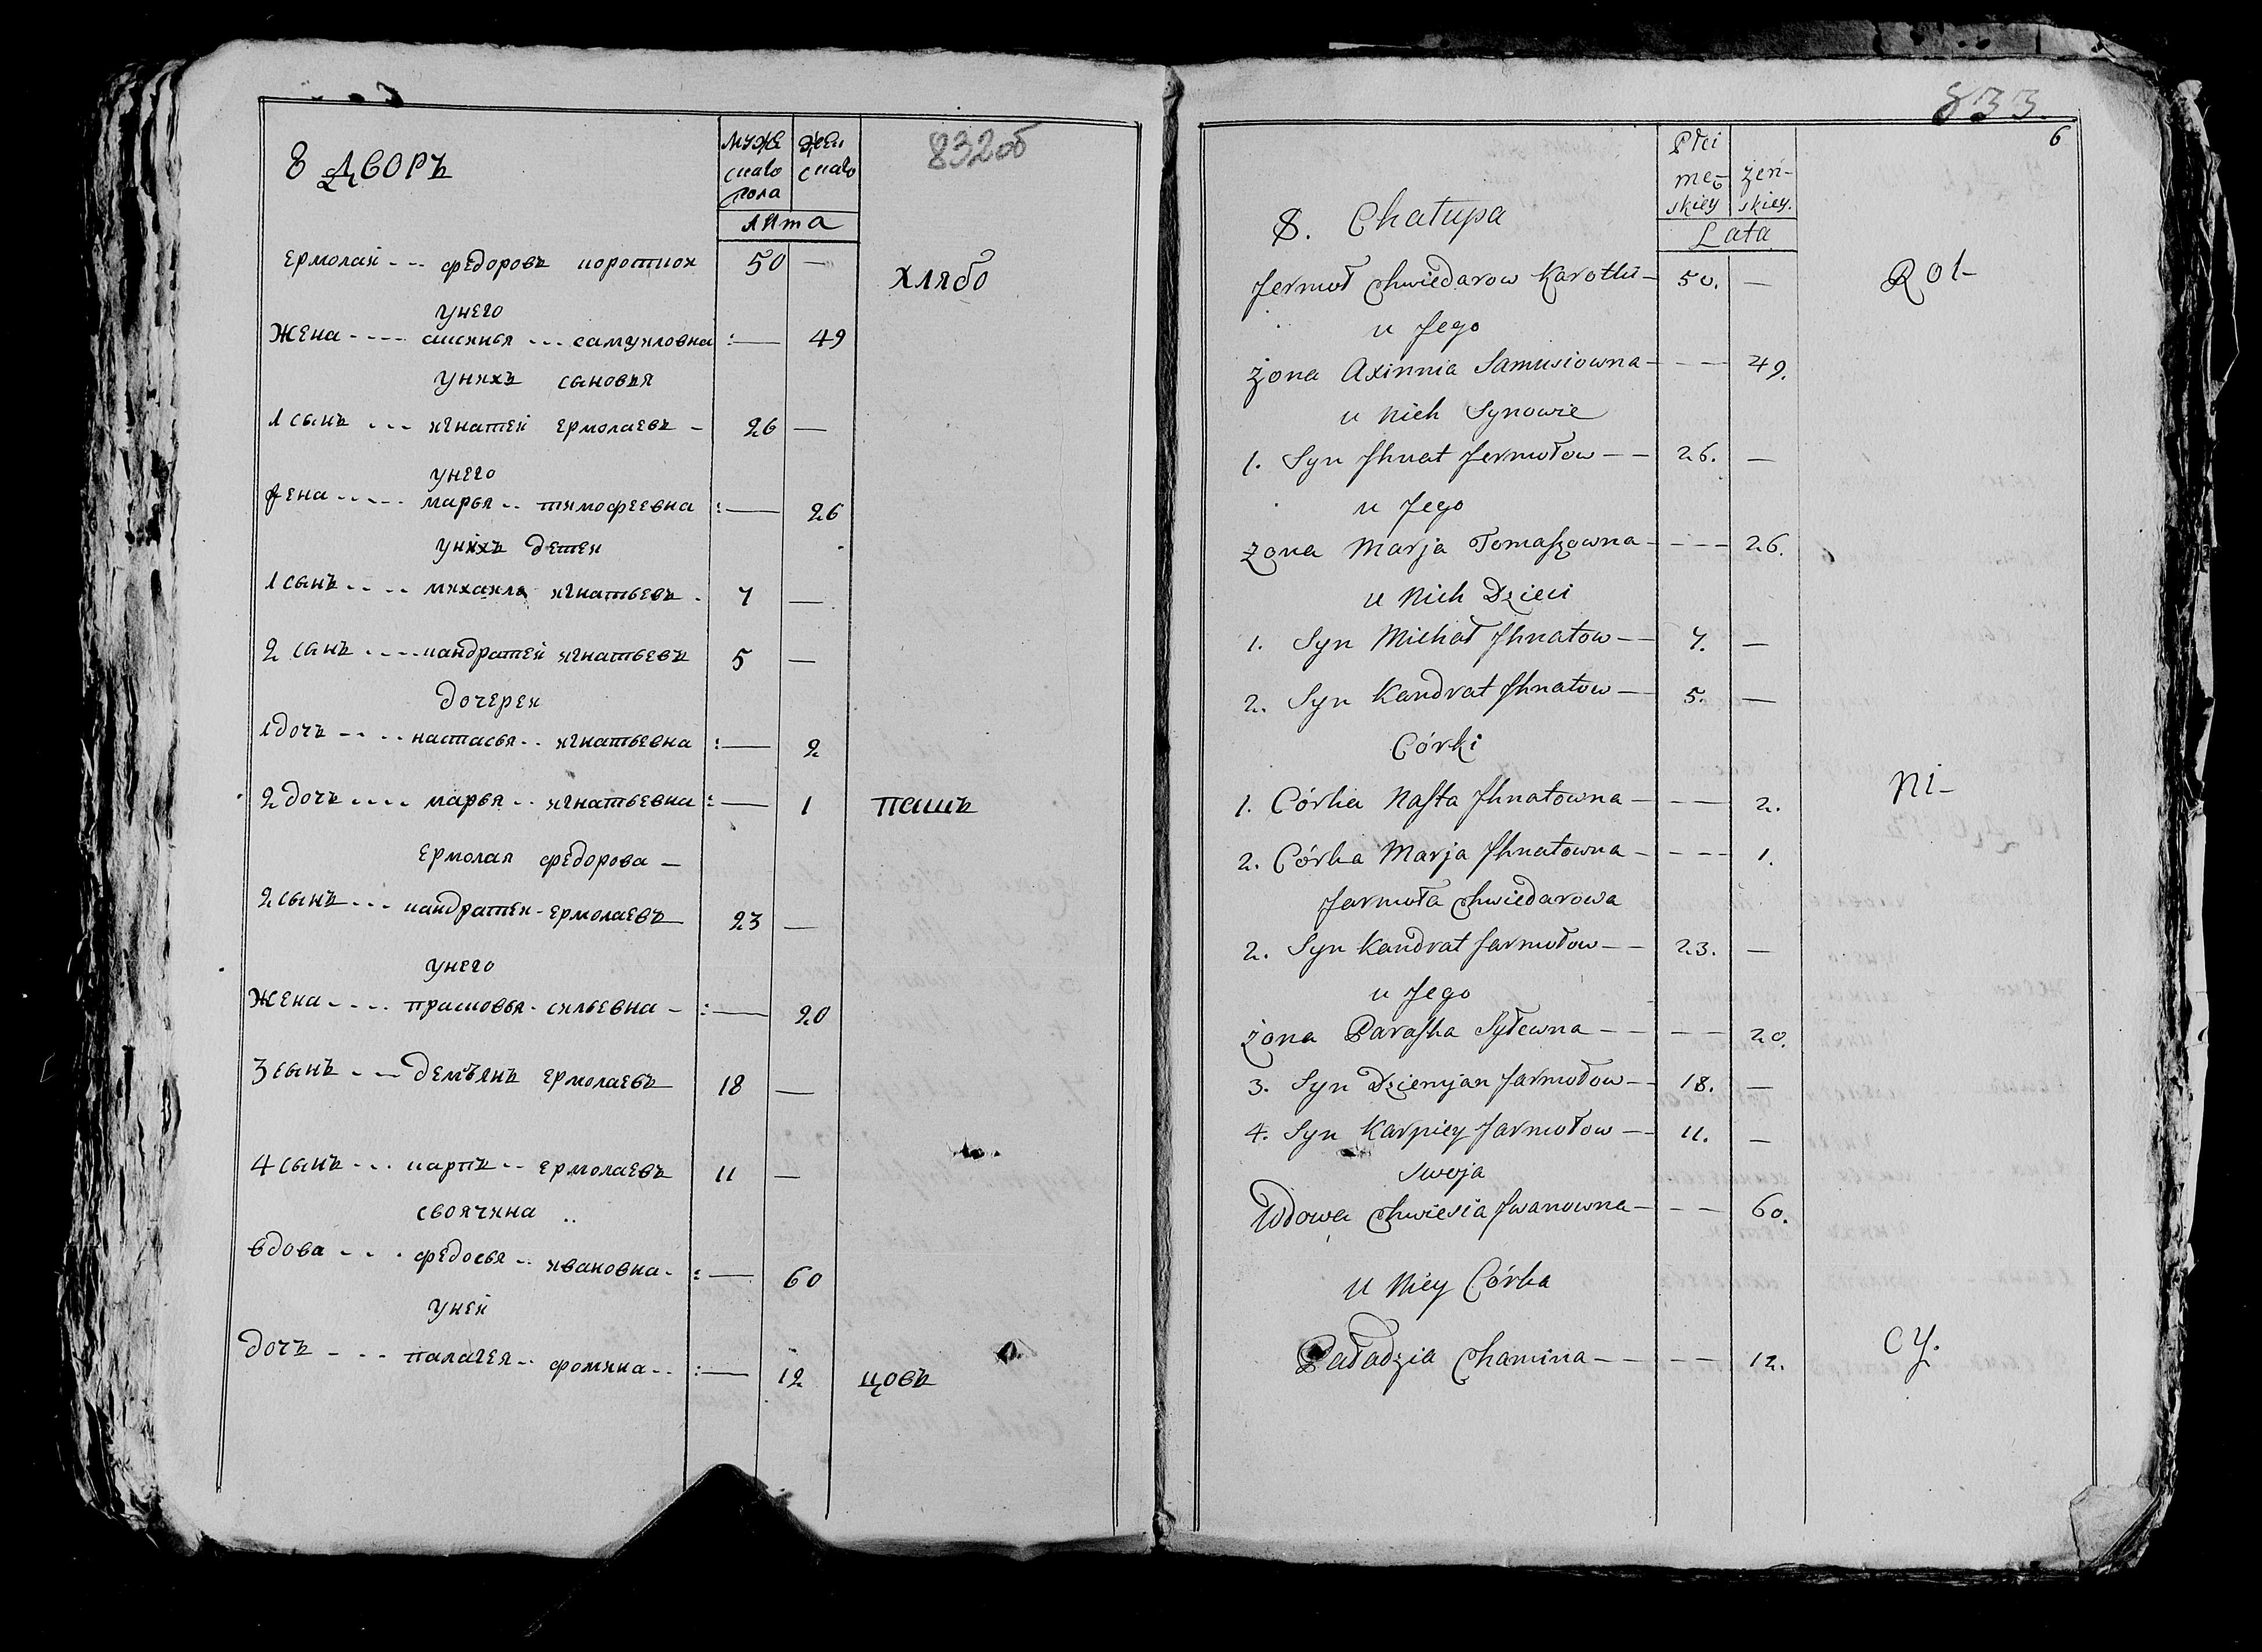 832об
8 ДВОРЪ
муже
скаго
пола
жен
скаго
лѣта
ермолай --- федоровъ короткой 50 —
хлябо
унего
Жена ---- аксинья --- самуиловна :— 49
унихъ сыновья
1 сынъ --- игнатей ермолаевъ - 26 —
унего
жена ----- марья -- тимофеевна :— 26
унихъ детей
1 сынъ ---- михаила игнатьевъ - 7 —
2 сынъ ---- кандратей игнатьевъ 5 —
дочерей
1 дочь ---- настасья -- игнатьевна :— 2
2 дочь ---- марья -- игнатьевна :— 1 пашъ
ермолая федорова —
2 сынъ --- кандратей - ермолаевъ 23 —
унего
Жена ---- прасковья - сильевна - :— 20
3 сынъ --- демъянъ ермолаевъ 18 —
4 сынъ --- карпъ -- ермолаевъ 11 —
своячина ..
вдова --- федосья -- ивановна - :— 60
уней
дочь --- палагея -- фомина -- :— 12 цовъ
833.
6
Płci
mę-
skiey
żeń-
skiey.
Lata
8. Chałupa
Jermoł Chwiedarow Karotki — 50. —
Rol-
u Jego
żona Axinnia Samusiowna — - — 49.
u Nich Synowie
1. Syn Jhnat Jermołow — — 26. —
u Jego
żona Marja Tomaszowna — - - — 26.
u Nich Dzieci
1. Syn Michał Jhnatow — — 7. —
2. Syn Kandrat Jhnatow — — 5. —
Córki
1. Córka Nasta Jhnatowna — - — 2.
Ni-
2. Córka Marja Jhnatowna — - - — 1.
Jarmoła Chwiedarowa
2. Syn Kandrat Jarmołow — — 23. —
u Jego
żona Paraska Syłewna — — - — 20.
3. Syn Dziemjan Jarmołow — — 18. —
4. Syn Karpiey Jarmołow — — 11. —
Swoja
Wdowa Chwiesia Jwanowna — - — 60.
u Niey Córka
Paładzia Chamina — — - — 12.
cy.